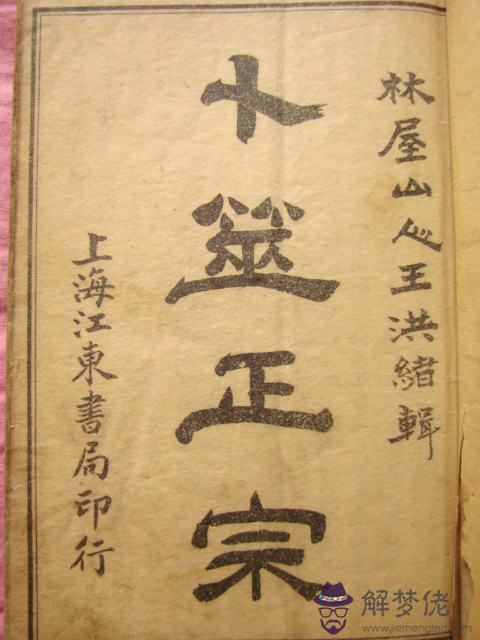 林屋山人王洪緒輯
卜筮正宗
上海江東書局印行
解梦佬
www.jiemenglao.com